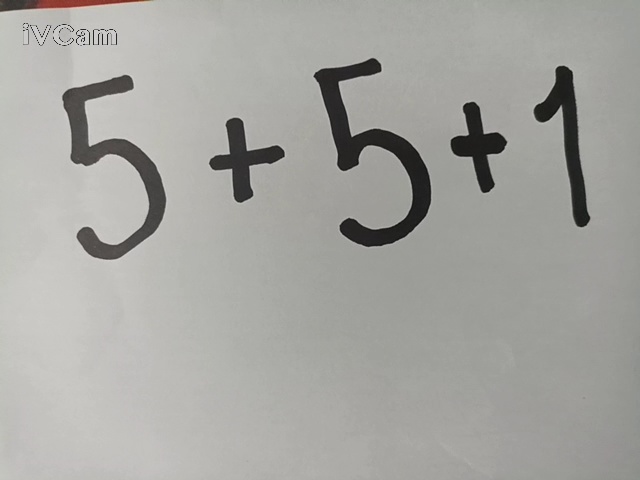 iVCam
5+5+1